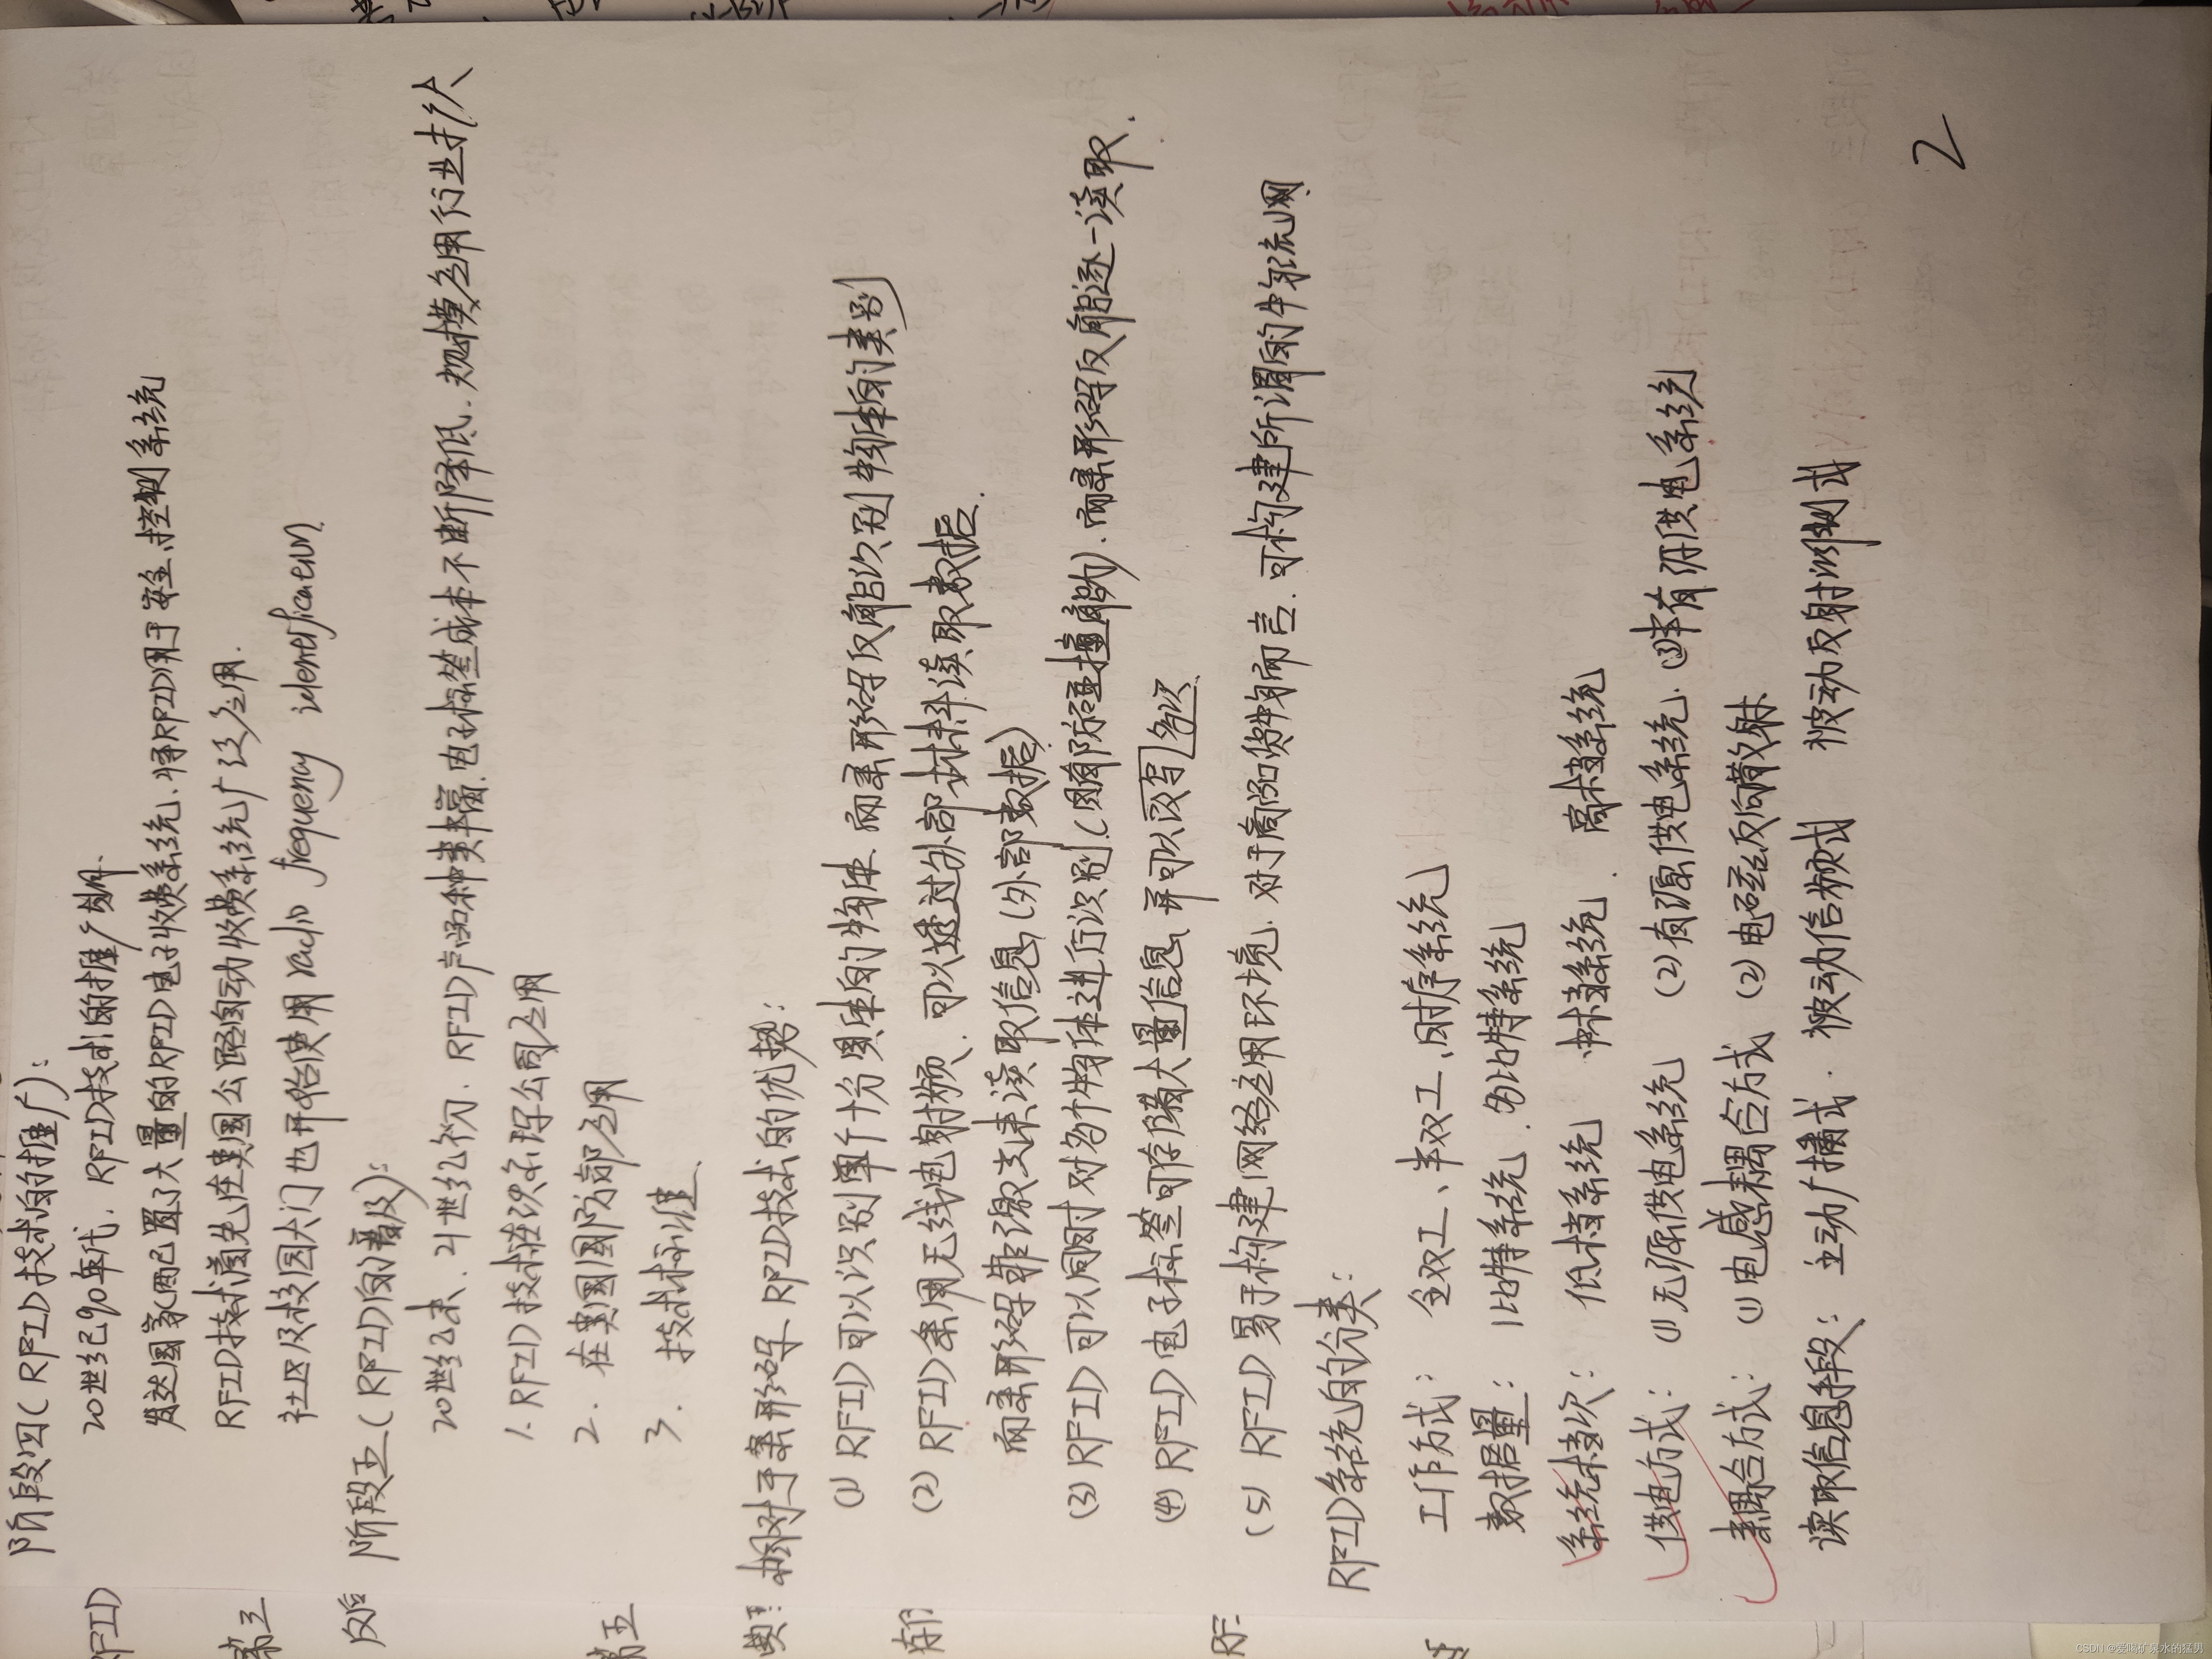 阶段四(RFID技术的推广):
20世纪90年代. RFID技术的推广期.
发达国家配置了大量的RFID电子收费系统. 将RFID用于安全.控制系统
RFID技术首先在美国公路自动收费系统广泛应用.
社区及校园大门也开始使用 radio frequency identification
阶段五(RFID的普及):
20世纪末、21世纪初. RFID产品种类丰富.电子标签成本不断降低.规模应用行业扩大
1. RFID技术在沃尔玛公司应用
2. 在美国国防部应用
3. 技术标准
相对于条形码 RFID技术的优势:
(1) RFID可以识别单个十分具体的物体. 而条形码仅能识别物体的类别
(2) RFID采用无线电射频. 可以透过外部材料读取数据.
而条形码靠激光来读取信息(外部数据)
(3) RFID可以同时对多个物体进行识别.(因有防碰撞能力).而条形码仅能逐一读取.
(4) RFID电子标签可存储大量信息 并可以读写多次.
(5) RFID易于构建网络应用环境. 对于商品货物而言. 可构建所谓的物流网
RFID系统的分类:
工作方式: 全双工、半双工、时序系统
数据量: 1比特系统.多比特系统
系统档次: 低档系统 中档系统. 高档系统
供电方式: (1)无源供电系统 (2)有源供电系统.(3)半有源供电系统
耦合方式: (1)电感耦合方式 (2)电磁反向散射
读取信息手段: 主动广播式. 被动倍频式 被动反射调制式
2
RFID
第三
反后
第五
RF
CSDN @爱喝矿泉水的猛男